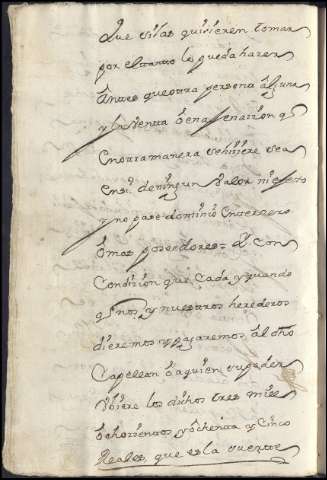 Que si las quisieren tomar
por el tanto lo pueda hazer
Antes que otra persona alguna
y la Venta o enajenacion q
En otra manera se hiziere sea
En si de ningun Valor ni efecto
y no pase dominio En tercero
o mas poseedores = Y Con
Condizion que Cada y quando
q nos, y nuestros herederos
dieremos y pagaremos al dho
Capellan o a quien su poder
Vbiere los dichos tres mill
ochozientos y ochenta y Cinco
Reales, que es la suerte